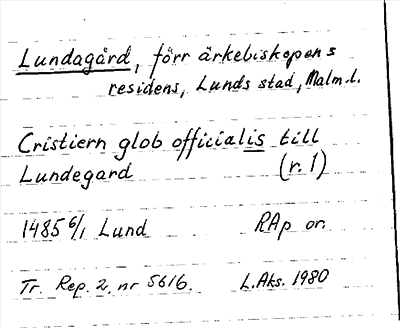 Lundagård, förr ärkebiskopens
residens, Lunds stad, Malm.l.
Cristiern glob officialis till
Lundegard (r. 1)
1485 6/1 Lund RAp or.
Tr. Rep. 2. nr 5616. L.Aks. 1980